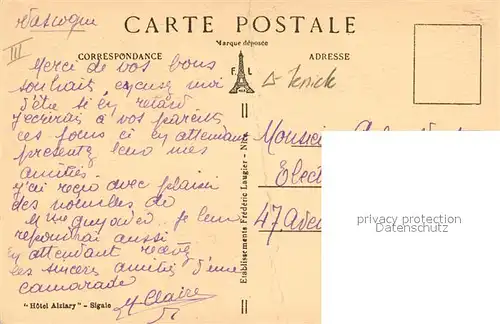 CARTE POSTALE
Marque déposée
CORRESPONDANCE
ADRESSE
E. L
III
Merci de vos bons
souhaits, excusez moi
d'être si en retard
j'écrirai à vos parents
ces jours ci en attendant
présentez leur mes
amitiés.
j'ai reçu avec plaisir
des nouvelles de
Mme je leur
repondrai aussi
en attendant recevez
les sincères amitiés d'une
camarade
M Claire
"Hôtel Alziary" – Sigale
Etablissements Frédéric Laugier - Nice
Monsieur
Elect
47 Aven
privacy protection
Datenschutz